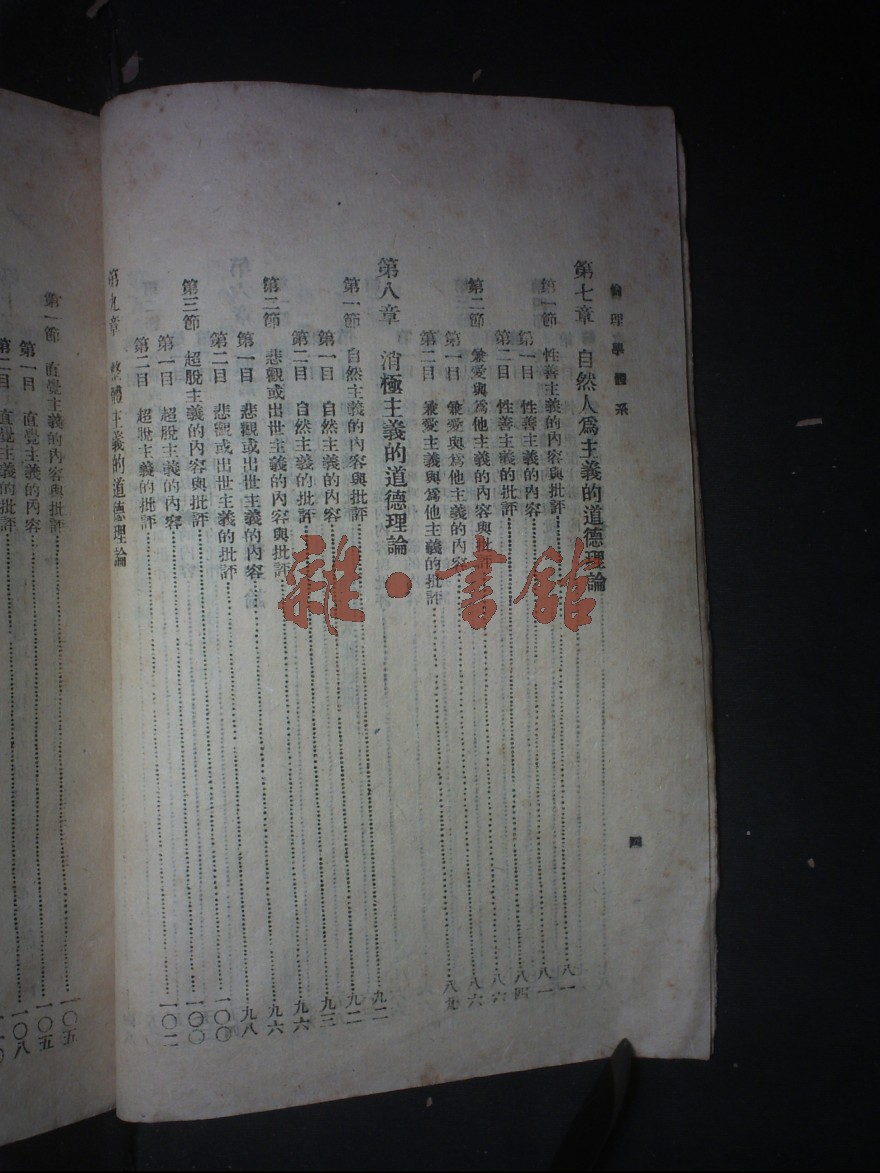 倫理學體系 四
第七章 自然人爲主義的道德理論
第一節 性善主義的內容與批評……八一
第一目 性善主義的內容……八一
第二目 性善主義的批評……八四
第二節 兼愛與爲他主義的內容與批評……八六
第一目 兼愛與爲他主義的內容……八六
第二目 兼愛主義與爲他主義的批評……八九
第八章 消極主義的道德理論
第一節 自然主義的內容與批評……九二
第一目 自然主義的內容……九二
第二目 自然主義的批評……九三
第二節 悲觀或出世主義的內容與批評……九六
第一目 悲觀或出世主義的內容……九六
第二目 悲觀或出世主義的批評……九八
第三節 超脫主義的內容與批評……一〇〇
第一目 超脫主義的內容……一〇〇
第二目 超脫主義的批評……一〇二
第九章 整體主義的道德理論
第一節 直覺主義的內容與批評……一〇五
第一目 直覺主義的內容……一〇五
第二目 直覺主義的批評……一〇八
雜·書館